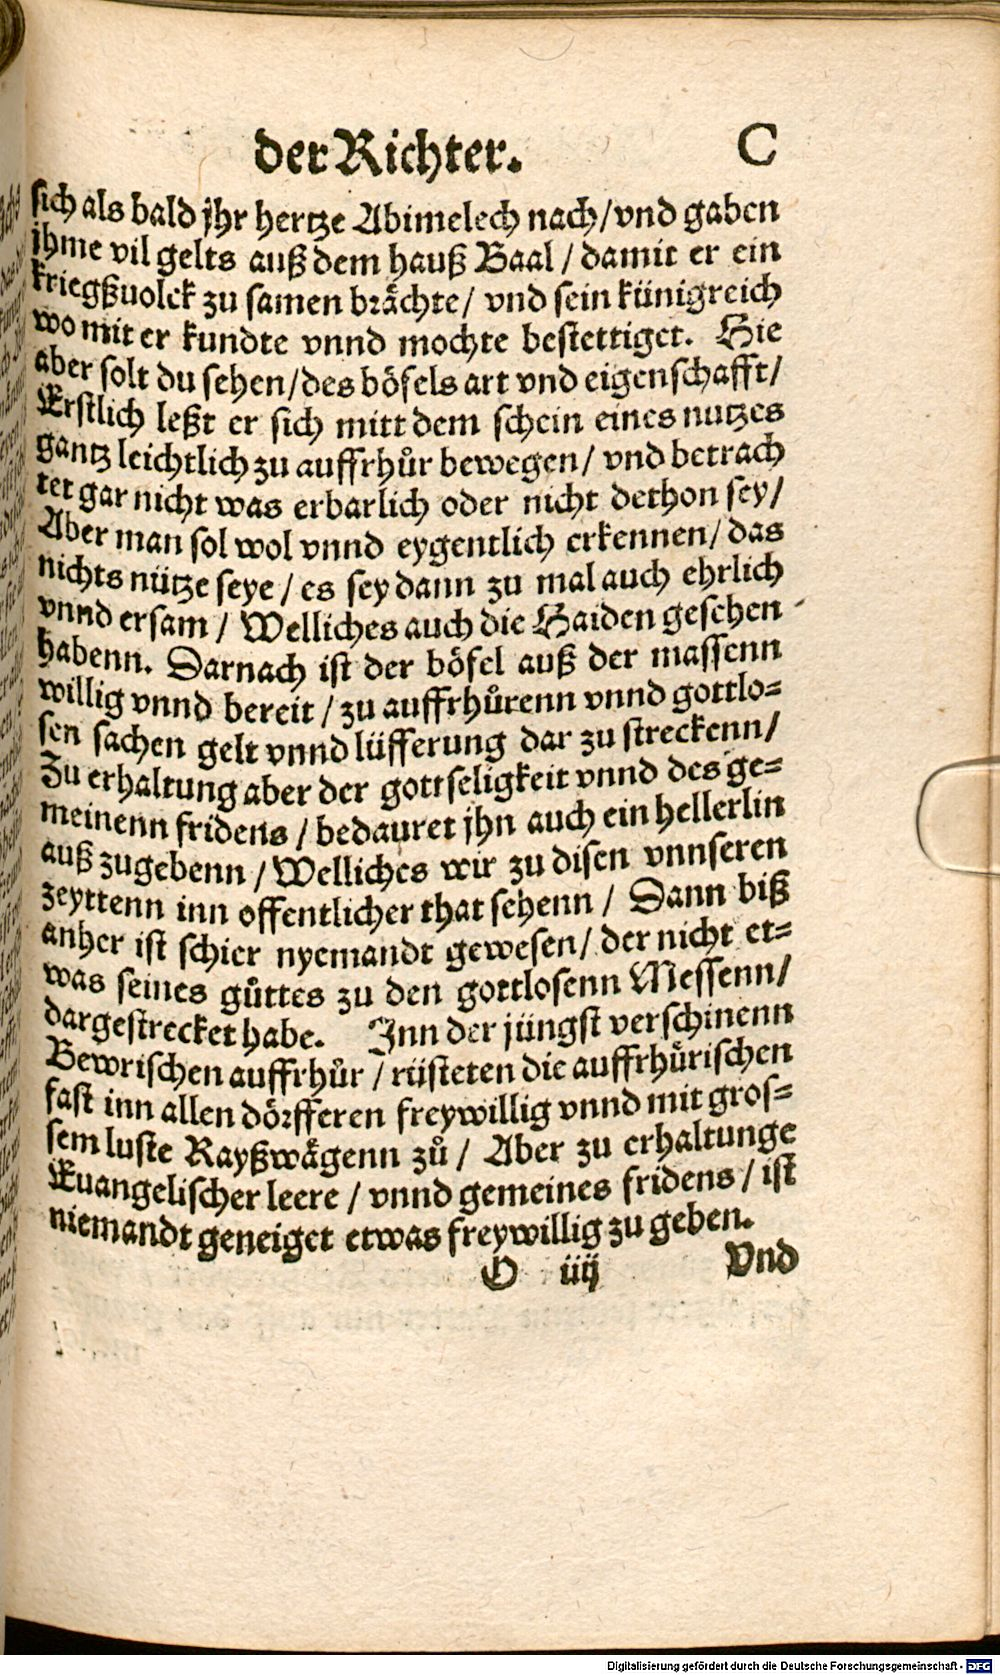 der Richter. C
sich als bald jhr hertze Abimelech nach/vnd gaben
jhme vil gelts auß dem hauß Baal / damit er ein
kriegßuolck zu samen brächte/ vnd sein künigreich
wo mit er kundte vnnd mochte bestettiget. Hie
aber solt du sehen/des böfels art vnd eigenschafft/
Erstlich leßt er sich mitt dem schein eines nutzes
gantz leichtlich zu auffrhůr bewegen/ vnd betrach
tet gar nicht was erbarlich oder nicht dethon sey/
Aber man sol wol vnnd eygentlich erkennen/ das
nichts nütze seye / es sey dann zu mal auch ehrlich
vnnd ersam / Welliches auch die Haiden gesehen
habenn. Darnach ist der böfel auß der massenn
willig vnnd bereit / zu auffrhůrenn vnnd gottlo-
sen sachen gelt vnnd lüfferung dar zu streckenn/
Zu erhaltung aber der gottseligkeit vnnd des ge-
meinenn fridens / bedauret jhn auch ein hellerlin
auß zugebenn / Welliches wir zu disen vnnseren
zeyttenn inn offentlicher that sehenn / Dann biß
anher ist schier nyemandt gewesen/ der nicht et-
was seines gůttes zu den gottlosenn Messenn/
dargestrecket habe. Inn der jüngst verschinenn
Bewrischen auffrhůr / rüsteten die auffrhůrischen
fast inn allen dörfferen freywillig vnnd mit gros-
sem luste Rayßwägenn zů / Aber zu erhaltunge
Euangelischer leere / vnnd gemeines fridens / ist
niemandt geneiget etwas freywillig zu geben.
O iiij Vnd
Digitalisierung gefördert durch die Deutsche Forschungsgemeinschaft - DFG